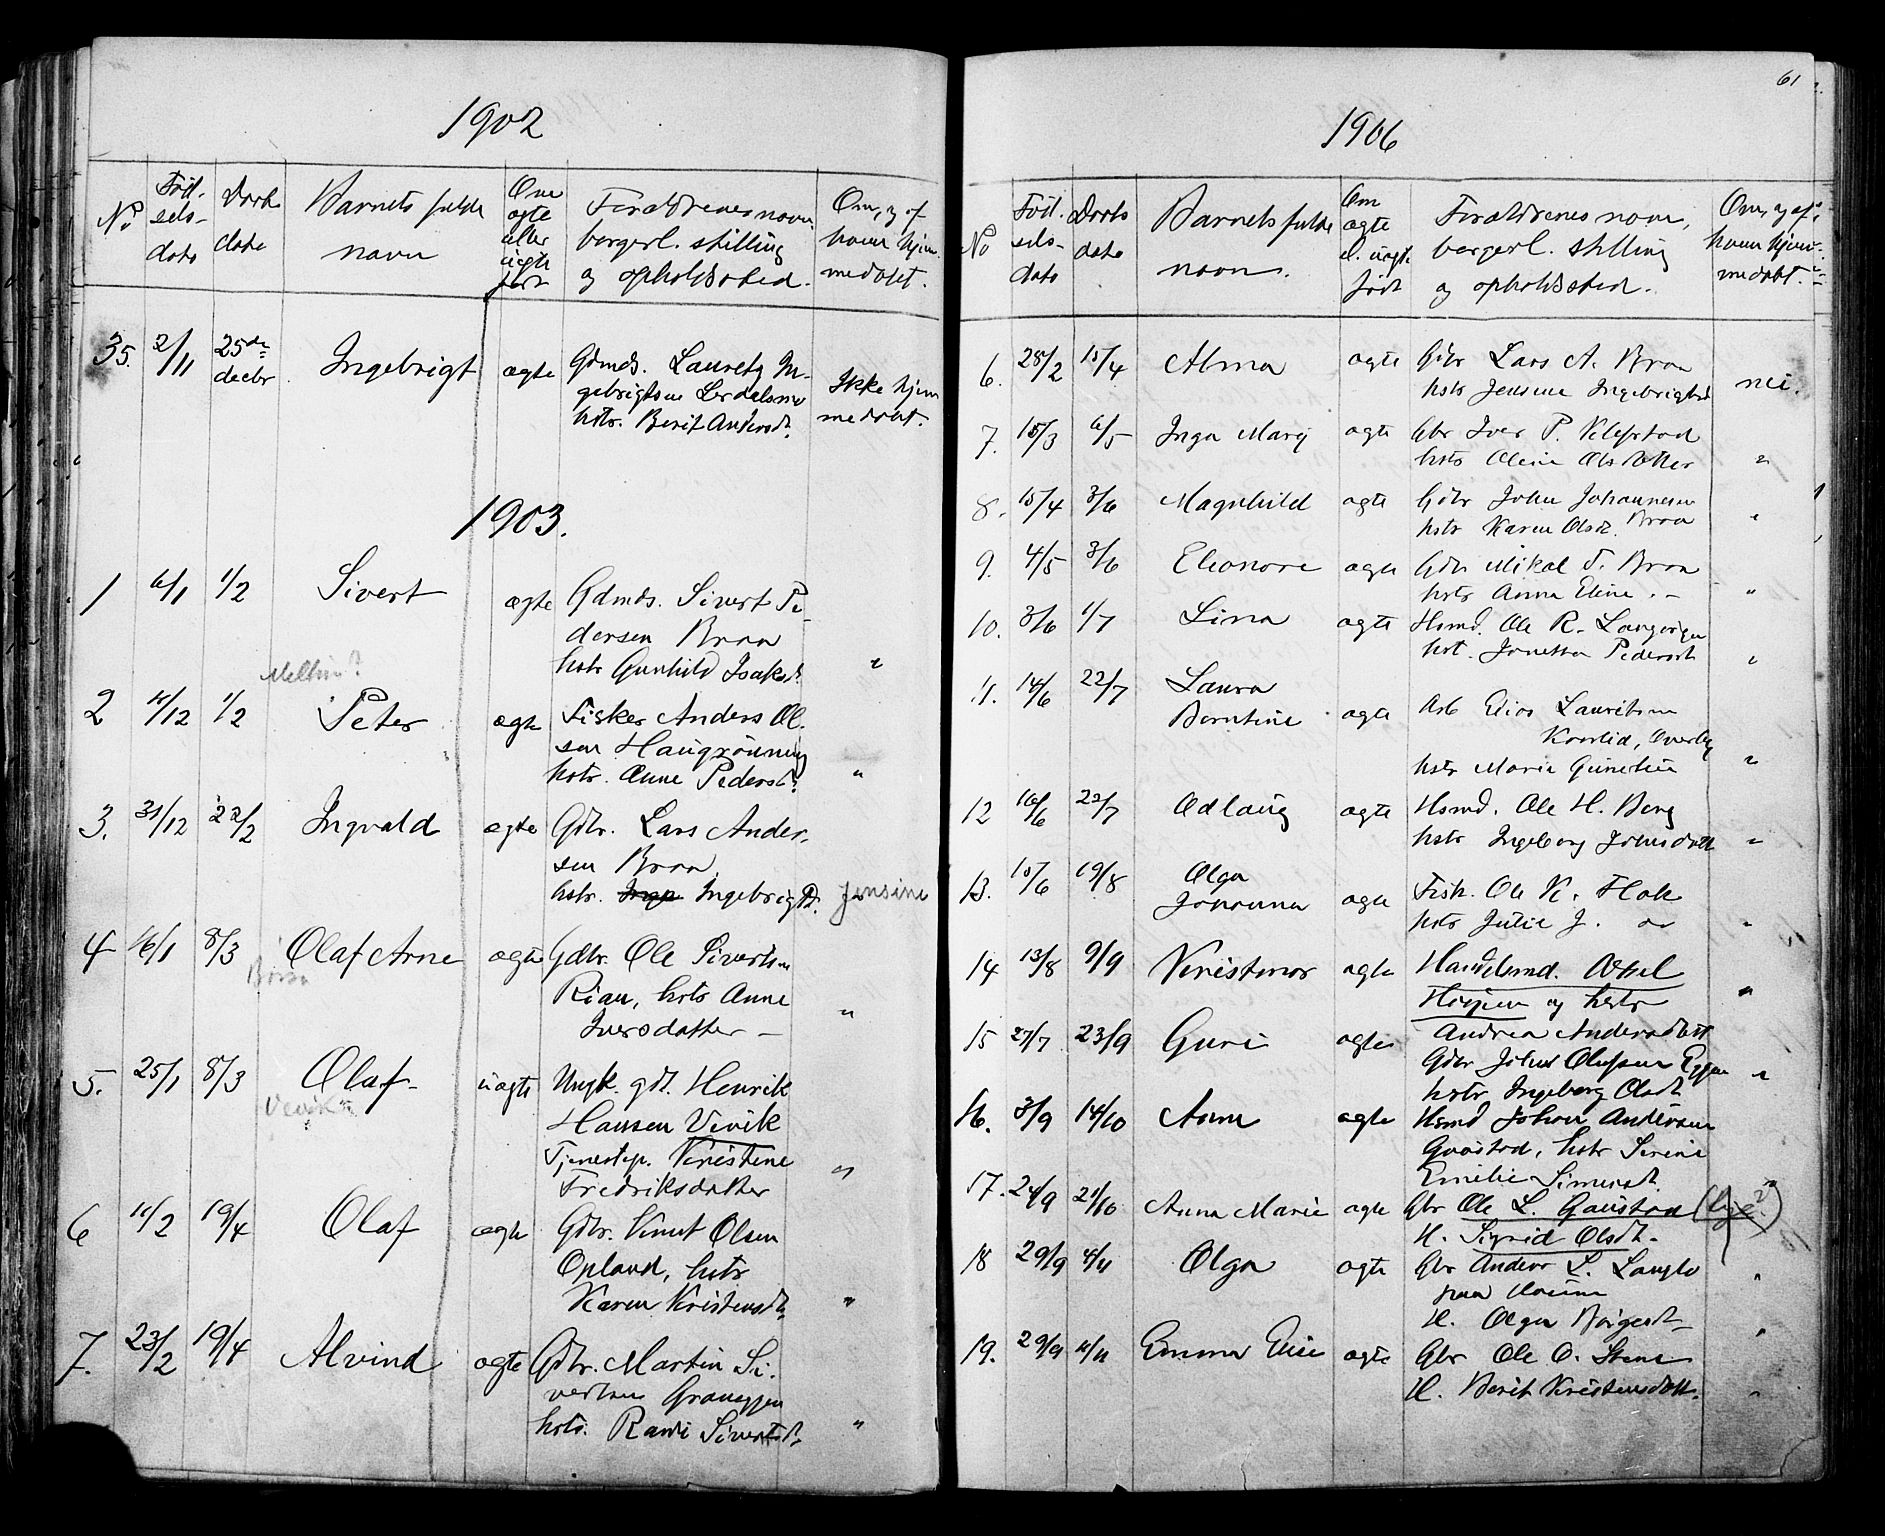 1902
No
Född-
sels-
dato
Daab
dato
Barnets fulde
navn
Om
ægte
eller
uægte
født
Forældrenes navn
borgerl. stilling
og opholdssted.
Om, og af
hvem hjem-
medøbt.
35. 2/11 25de decbr. Ingebrigt ægte Gdmds. Lauretz In-
gebrigtsen
hstr. Berit Andersdt.
Ikke hjem
medøbt.
1903.
1 6/1 1/2 Sivert ægte Gdmds. Sivert Pe-
dersen Braa
hstr Gunhild Isaksdt. "
2 11/12 1/2 Peter ægte Fisker Anders Ol-
sen Haugrønning
hstr. Anne Pedersdt. "
3. 31/12 22/2 Ingvald ægte Gdbr. Lars Ander-
sen Braa
hstr. Ingebrigtsdt. Jensine
4 16/1 8/3 Olaf Arne ægte Gdbr. Ole Sivertsen
Rian, hstr Anne
Iversdatter – "
Børsa
5. 25/1 8/3 Olaf uægte Ungk. gdt. Henrik
Hansen Vevik
Tjenestep. Kristine
Fredriksdatter "
Vevik
6 11/2 19/4 Olaf ægte Gdbr. Knut Olsen
Opland, hstr
Karen Kristensdt. "
7. 23/2 19/4 Alvind ægte Gdbr. Martin Si-
vertsen
hstr. Randi Sivertsdt. "
61
1906
No
Föd-
sels-
dato
Daabs
dato
Barnets fulde
navn.
Om
ægte
el. uægte
født
Forældrenes navn,
borgerl. stilling
og opholdssted.
Om, og af
hvem hjem-
medøbt.
6. 28/2 15/4 Alma ægte Gdbr Lars A. Braa
hstr Jensine Ingebrigtsd nei.
7. 15/3 6/5 Inga Marij ægte Gbr Iver P.
hstr Oline Olsdatter "
8. 15/4 3/6 Magnhild ægte Gdbr John Johannesen
hstr Karen Olsdt. Braa "
9. 4/5 3/6 Eleonore ægte Gdbr Mikal T. Braa
hstr Anna Eline. – "
10. 3/6 1/7 Lina ægte Hsmd. Ole R.
hst. Jonetta Pedersdt "
11. 14/6 22/7 Laura
Berntine ægte Arb Edias Lauritsen
hstr Maria "
12 16/6 22/7 Odlaug ægte Hsmd. Ole H. Berg
hstr Ingeborg Johnsdatt "
13. 15/6 19/8 Olga
Johanna ægte Fisk. Ole K. Flak
hstr Julie J. "
14 13/8 9/9 Kristmar ægte Handelsmd. Aksel
og hustr "
Andrea Andersdatt
15 27/7 23/9 Guri ægte Gdbr Johns Olufsen Eggen "
hstr Ingeborg Olsdt
16. 3/9 14/10 Anna ægte Hsmd Johan Andersen
Gaustad, hstr Serine
Emilie Simensdt.
17. 24/9 21/10 Anna Marie ægte Gbr Ole L. Gaustad
H. Sigrid Olsdt.
18 29/9 4/11 Olga ægte Gbr Anders L. Langlo
paa
H. Olga Børgesdt "
19. 29/9 11/11 Emma Elise ægte Gbr Ole O. Stene
H. Berit Kristensdatt. "